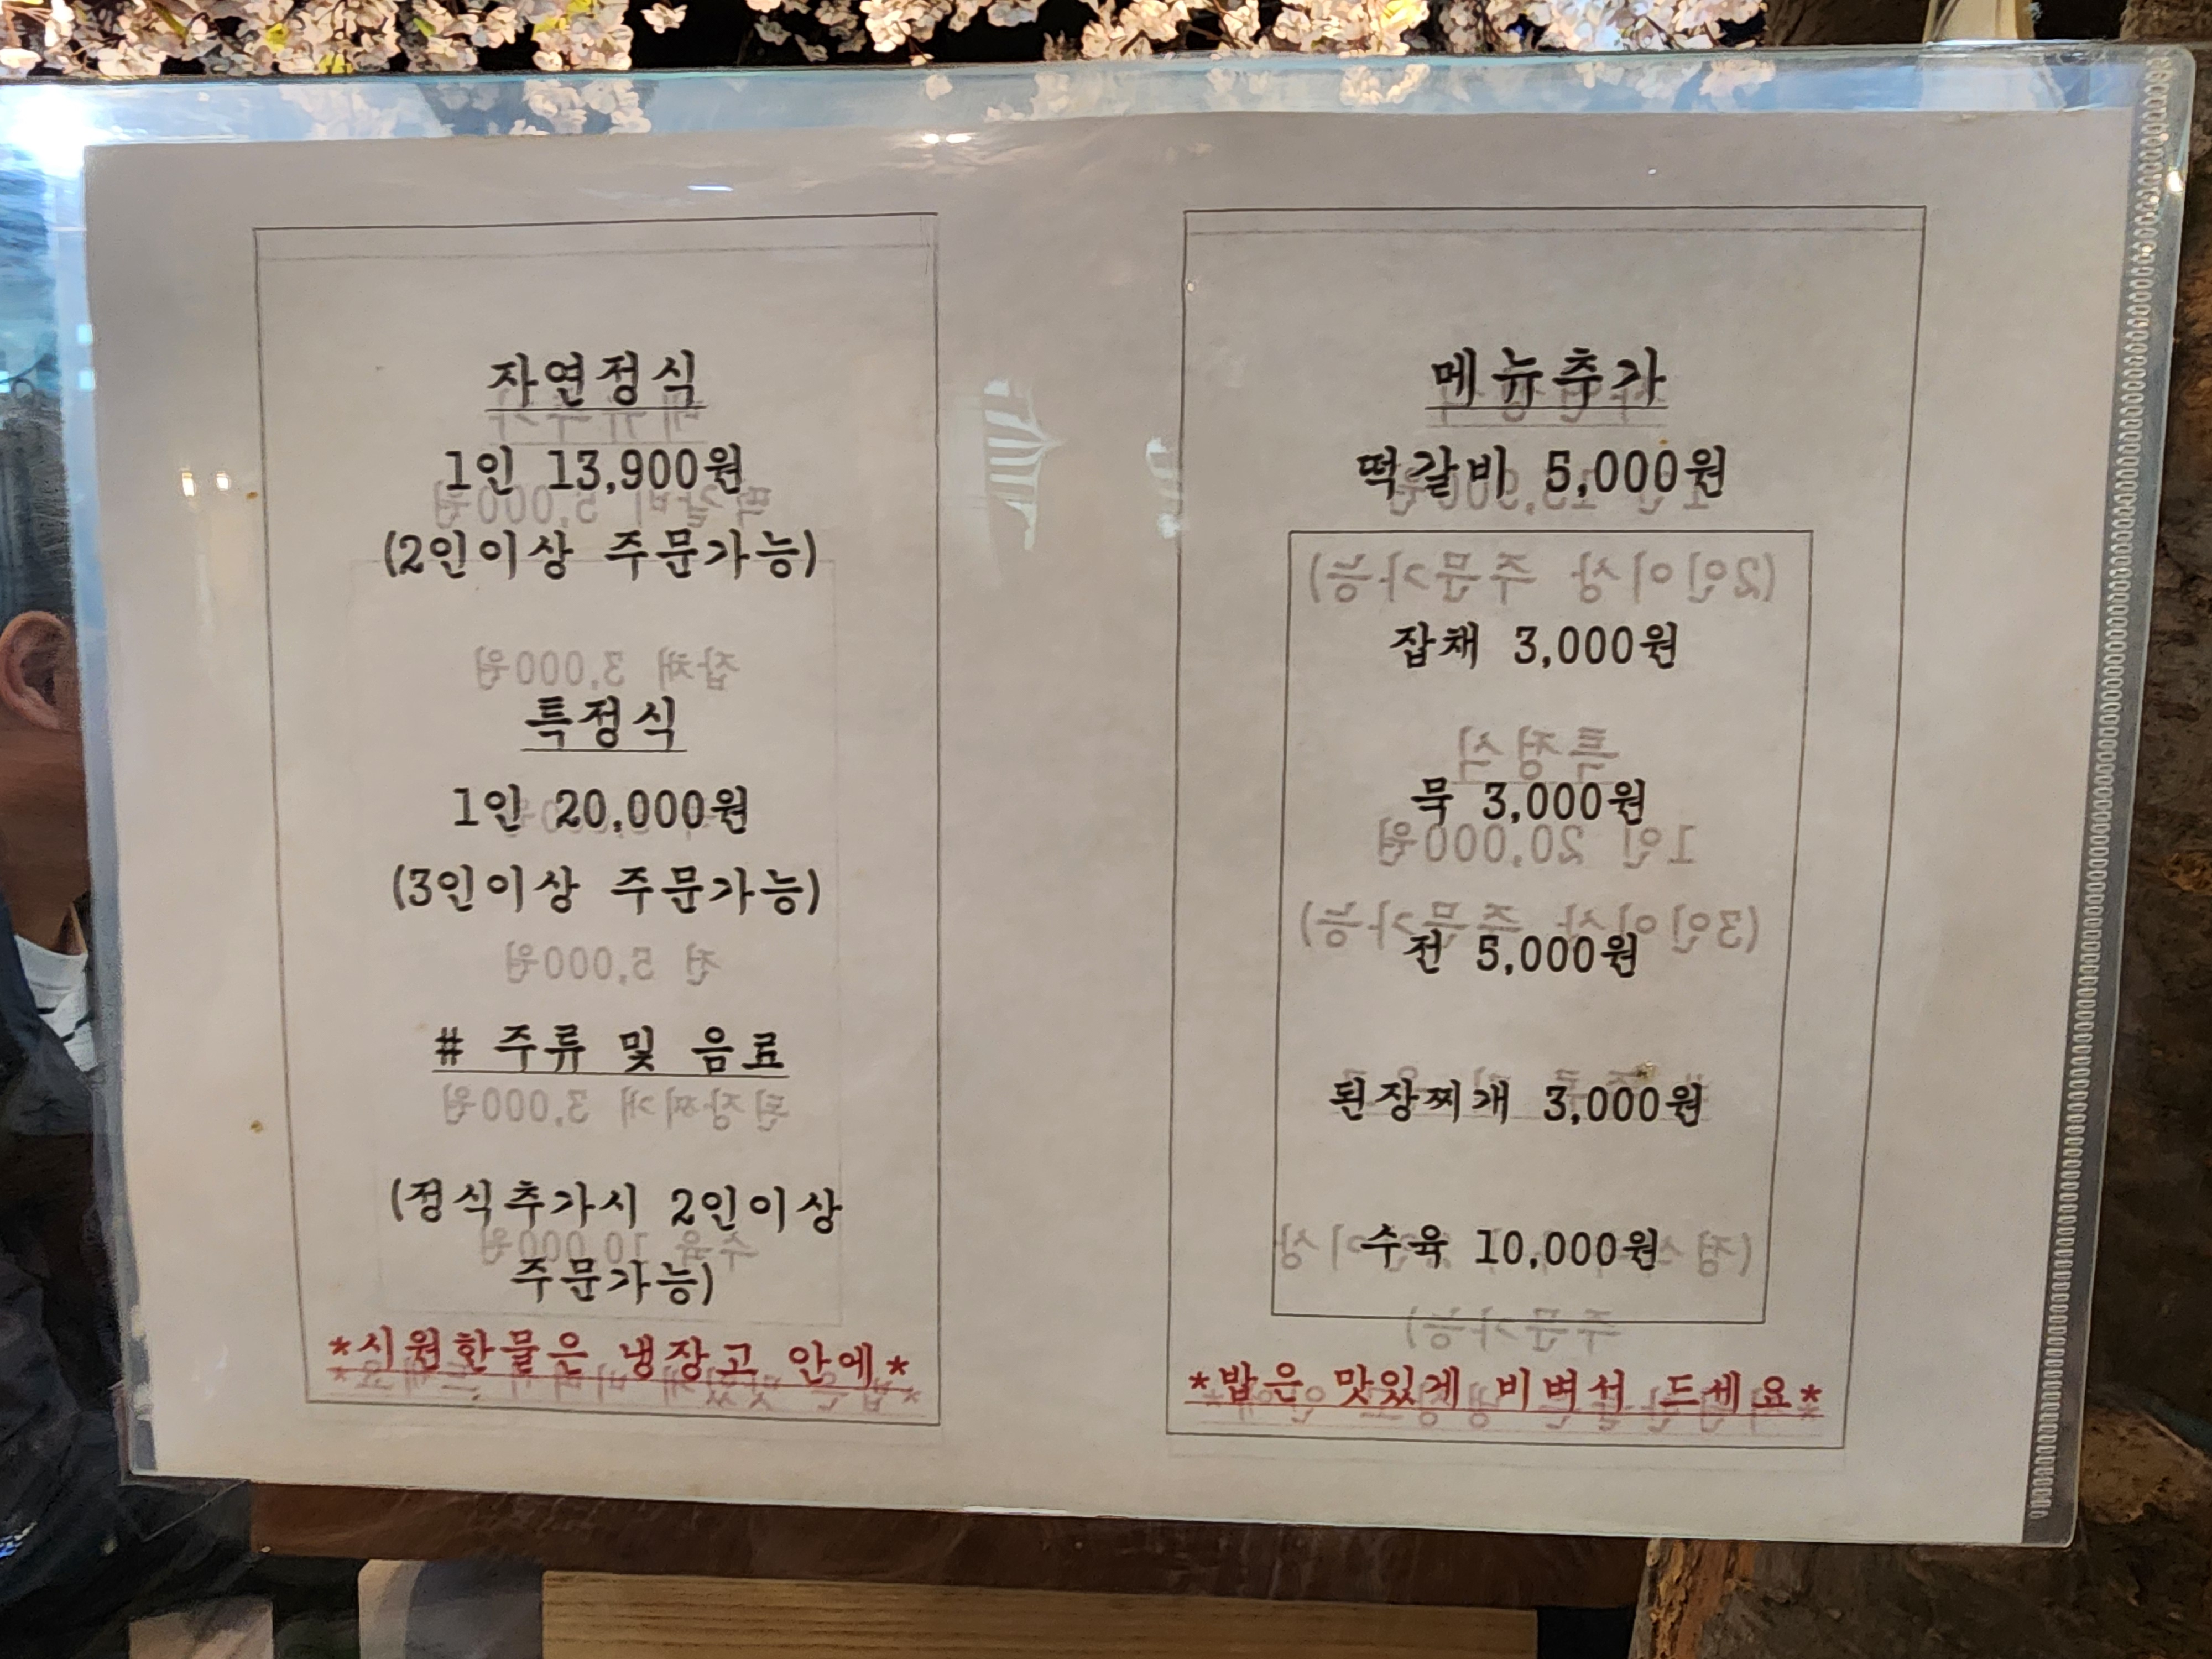 자연정식
1인 13,900원
(2인이상 주문가능)
특정식
1인 20,000원
(3인이상 주문가능)
# 주류 및 음료
(정식추가시 2인이상
주문가능)
*시원한물은 냉장고 안에*
메뉴추가
떡갈비 5,000원
잡채 3,000원
묵 3,000원
전 5,000원
된장찌개 3,000원
수육 10,000원
*밥은 맛있게 비벼서 드세요*